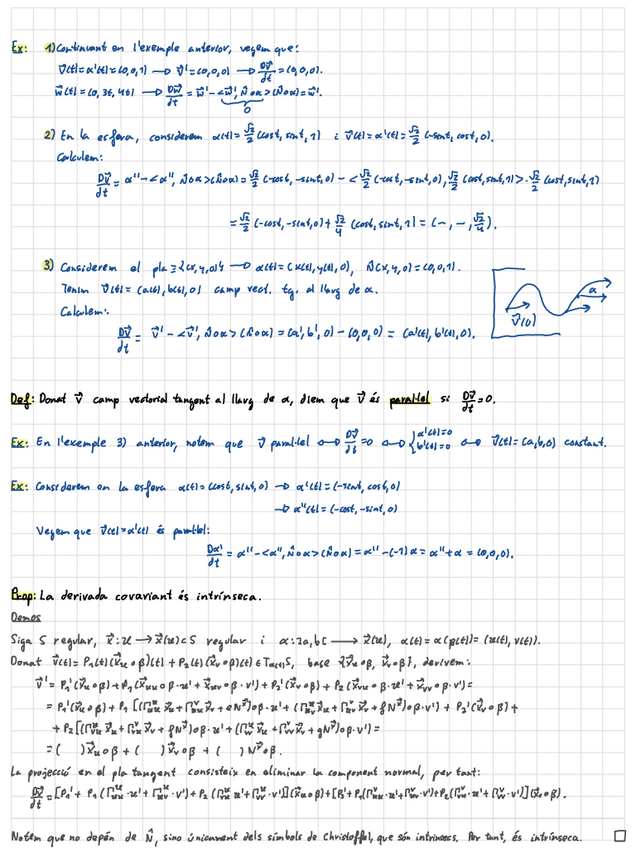 Ex: 1) Continuant en l'exemple anterior, vegem que:
V⃗(t)=α'(t)=(0,0,1) → V⃗'=(0,0,0) → DV⃗/dt = (0,0,0).
W⃗(t)=(0,3t,4t) → DW⃗/dt = W⃗' - <W⃗', N⃗∘α>(N⃗∘α)=W⃗'.
0
2) En la esfera, considerem α(t)= √2/2 (cost, sint, 1) i V⃗(t)=α'(t)= √2/2 (-sint, cost, 0).
Calculem:
DV⃗/dt = α'' - <α'', N⃗∘α>(N⃗∘α)= √2/2 (-cost, -sint, 0) - <√2/2 (-cost, -sint, 0), √2/2 (cost, sint, 1)>·√2/2 (cost, sint, 1)
= √2/2 (-cost, -sint, 0) + √2/4 (cost, sint, 1) = (-, -, √2/4).
3) Considerem el pla ≡{(x,y,0)} → α(t)=(x(t),y(t),0), N⃗(x,y,0)=(0,0,1).
Tenim V⃗(t)=(a(t),b(t),0) camp vect. tg. al llarg de α.
Calculem:
α
V⃗(0)
DV⃗/dt = V⃗' - <V⃗', N⃗∘α>(N⃗∘α)=(a',b',0)-(0,0,0) = (a'(t),b'(t),0).
Def: Donat V⃗ camp vectorial tangent al llarg de α, diem que V⃗ és paral·lel si DV⃗/dt=0.
Ex: En l'exemple 3) anterior, notem que V⃗ paral·lel ⟺ DV⃗/dt=0 ⟺ {a'(t)=0 b'(t)=0 ⟺ V⃗(t)=(a,b,0) constant.
Ex: Considerem en la esfera α(t)=(cost, sint, 0) → α'(t)=(-sint, cost, 0)
→ α''(t)=(-cost, -sint, 0)
Vegem que V⃗(t)=α'(t) és paral·lel:
Dα'/dt = α'' - <α'', N⃗∘α>(N⃗∘α)= α'' - (-1)α = α''+α = (0,0,0).
Prop: La derivada covariant és intrínseca.
Demos
Siga S regular, x⃗:U → x⃗(U)⊂S regular i α:]a,b[ → x⃗(U), α(t)=α(β(t))=(u(t),v(t)).
Donat V⃗(t)=P₁(t)(x⃗ᵤ∘β)(t)+P₂(t)(x⃗ᵥ∘β)(t)∈T_α(t)S, base {x⃗ᵤ∘β, x⃗ᵥ∘β}, derivem:
V⃗'=P₁'(x⃗ᵤ∘β)+P₁(x⃗ᵤᵤ∘β·u'+x⃗ᵤᵥ∘β·v')+P₂'(x⃗ᵥ∘β)+P₂(x⃗ᵥᵤ∘β·u'+x⃗ᵥᵥ∘β·v')=
=P₁'(x⃗ᵤ∘β)+P₁[(Γᵤᵤᵘ x⃗ᵤ+Γᵤᵤᵛ x⃗ᵥ+eN⃗)∘β·u'+(Γᵤᵥᵘ x⃗ᵤ+Γᵤᵥᵛ x⃗ᵥ+fN⃗)∘β·v']+P₂'(x⃗ᵥ∘β)+
+P₂[(Γᵥᵤᵘ x⃗ᵤ+Γᵥᵤᵛ x⃗ᵥ+fN⃗)∘β·u'+(Γᵥᵥᵘ x⃗ᵤ+Γᵥᵥᵛ x⃗ᵥ+gN⃗)∘β·v']=
=( )x⃗ᵤ∘β+( )x⃗ᵥ∘β+( )N⃗∘β.
La projecció en el pla tangent consisteix en eliminar la component normal, per tant:
DV⃗/dt=[P₁'+P₁(Γᵤᵤᵘ·u'+Γᵤᵥᵘ·v')+P₂(Γᵥᵤᵘ·u'+Γᵥᵥᵘ·v')](x⃗ᵤ∘β)+[P₂'+P₁(Γᵤᵤᵛ·u'+Γᵤᵥᵛ·v')+P₂(Γᵥᵤᵛ·u'+Γᵥᵥᵛ·v')](x⃗ᵥ∘β).
Notem que no depén de N⃗, sino únicament dels símbols de Christoffel, que són intrínsecs. Per tant, és intrínseca. □